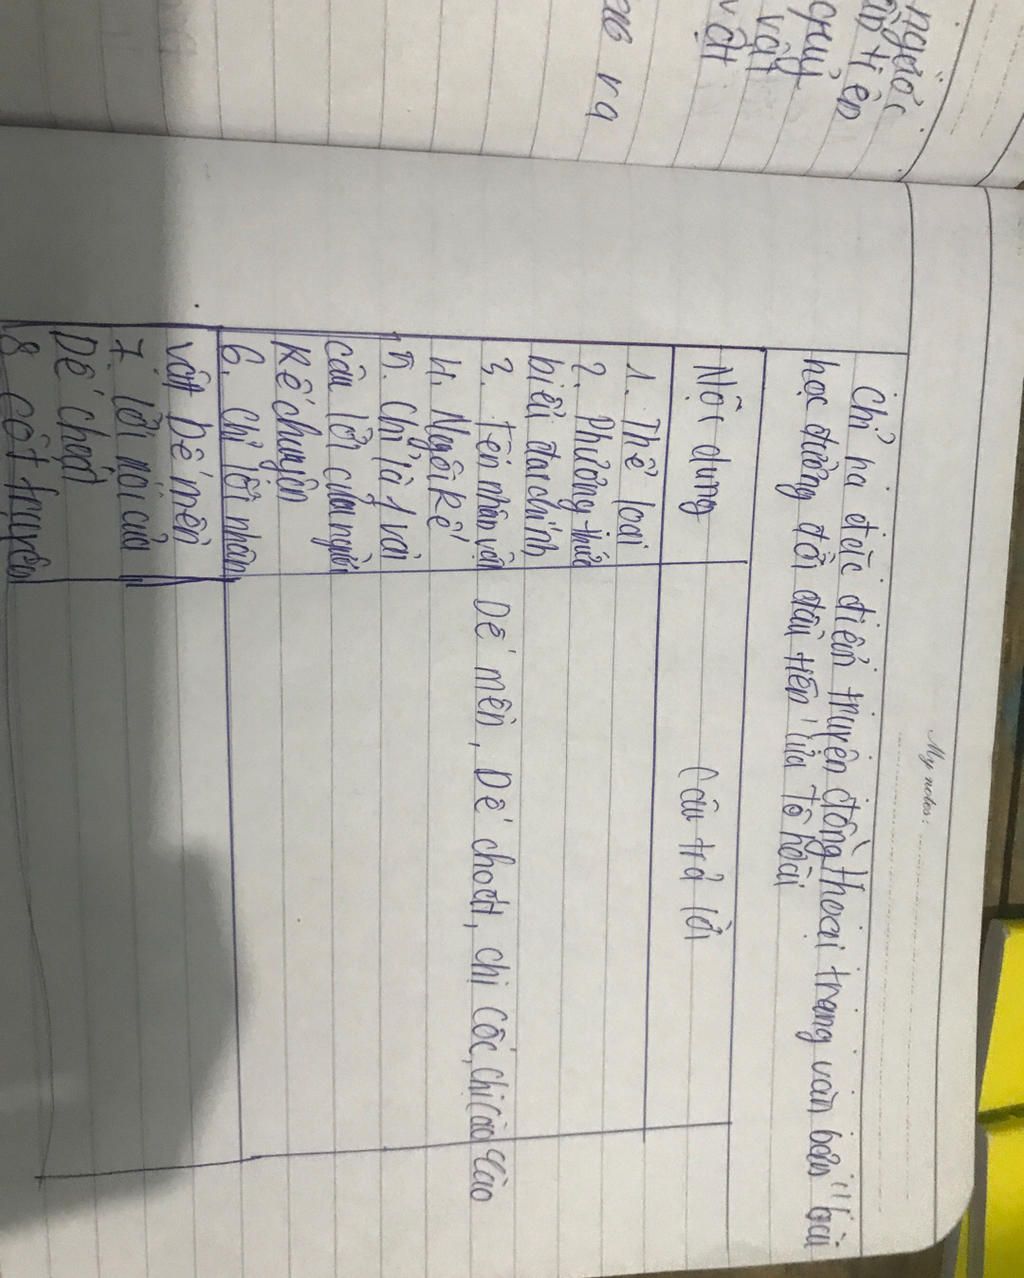 ngược
ần tiên
quy
vật
vớt
ra
My notes:
Chỉ ra đặc điểm truyện đồng thoại trang văn bản "bài
học đường đời đầu tiên" của tô hoài
Nội dung
Câu trả lời
1. Thể loại
2. Phương thức
biểu đạt chính
3. Tên nhân vật
Dế mèn, Dế choắt, chị cốc, chị cào cào
4. Ngôi kể
5. Chỉ là 1 vài
câu lời của người
kể chuyện
6. Chỉ lời nhân
vật Dế mèn
7. lời nói của
Dế choắt
8 cốt truyện